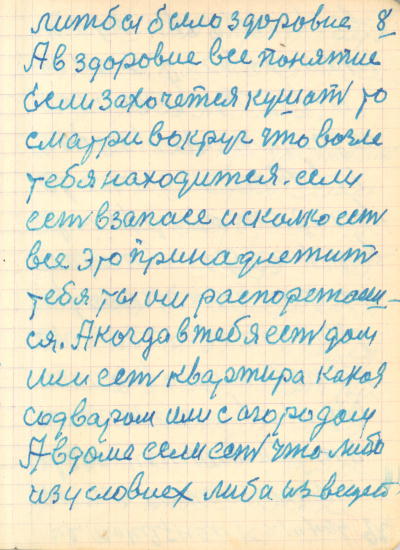 литбы было здоровие 8
А в здоровие все понятие
Если захочется кушат то
сматри вокруг что возле
тебя находится. если
ест в запасе и сколко ест
все это принадлежит
тебя ты им распорежаеш-
ся. А когда в тебя ест дом
или ест квартира какая
со дваром или с огородом
А в доме если ест что либо
из условиех либа из вещей